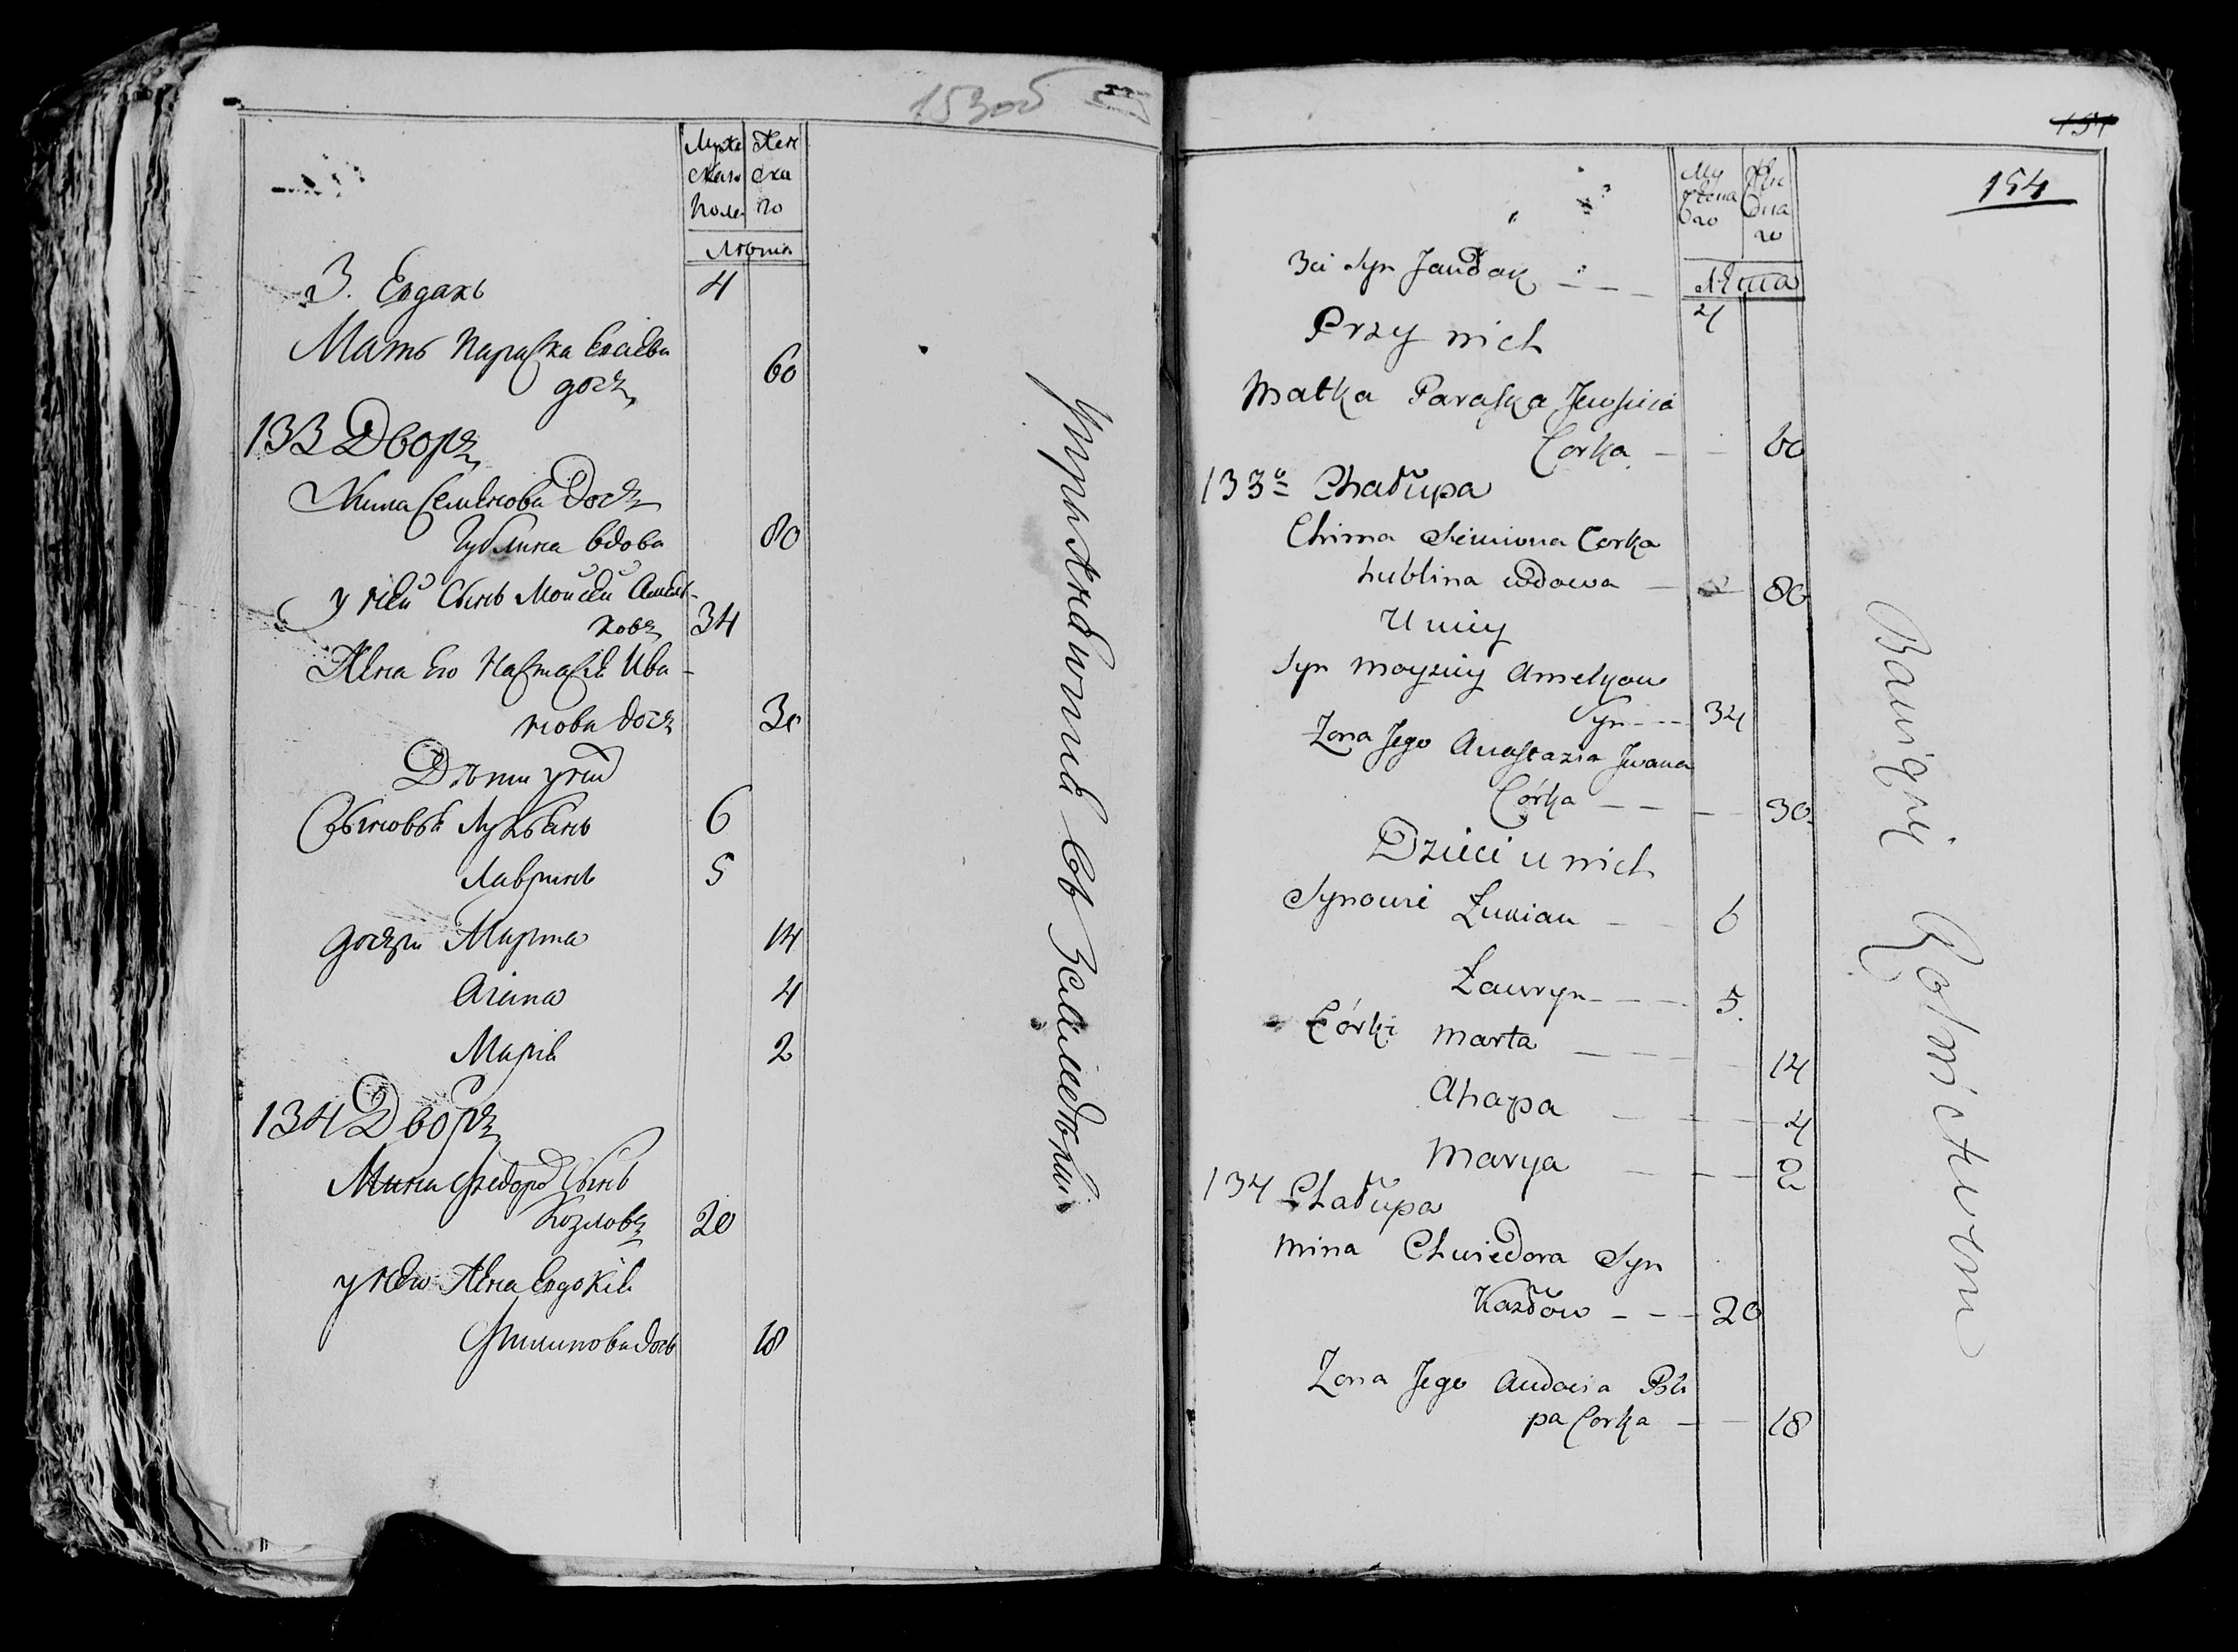 153об
Муже
скаго
полу
Жен
ска
го
Лѣта
3. Евдахъ 4
Мать Параска Евсіева
дочь 60
133 Дворъ
Хима Семенова Дочь
Гублина вдова 80
у ней Сынъ Мойсей Амель-
ковъ 34
Жена Его Настасія Ива-
нова дочь 30
Дѣти у них
Сыновья Лукьянъ 6
Лавринъ 5
дочери Марта 14
Агапа 4
Марія 2
134 Дворъ
Мина Федоров Сынъ
Козловъ 20
у Него Жена Евдокія
Филипова дочь 18
154
Лѣта
3ci Syn Jaudak 4
Przy nich
Matka Paraska Jewsieia
Corka 60
133a Chałupa
Chima Siemiona Corka
hublina wdowa 80
U niey
Syn Moysiey Amelyan
Syn 34
Zona Jego Anastazia Jwana
Córka 30
Dzieci u nich
Synowie Łukian 6
Ławryn 5.
Córki Marta 14
Ahapa 4
Marya 2
134 Chałupa
Mina Chwiedora Syn
Kazłow 20
Zona Jego Audocia Pili
pa Corka 18